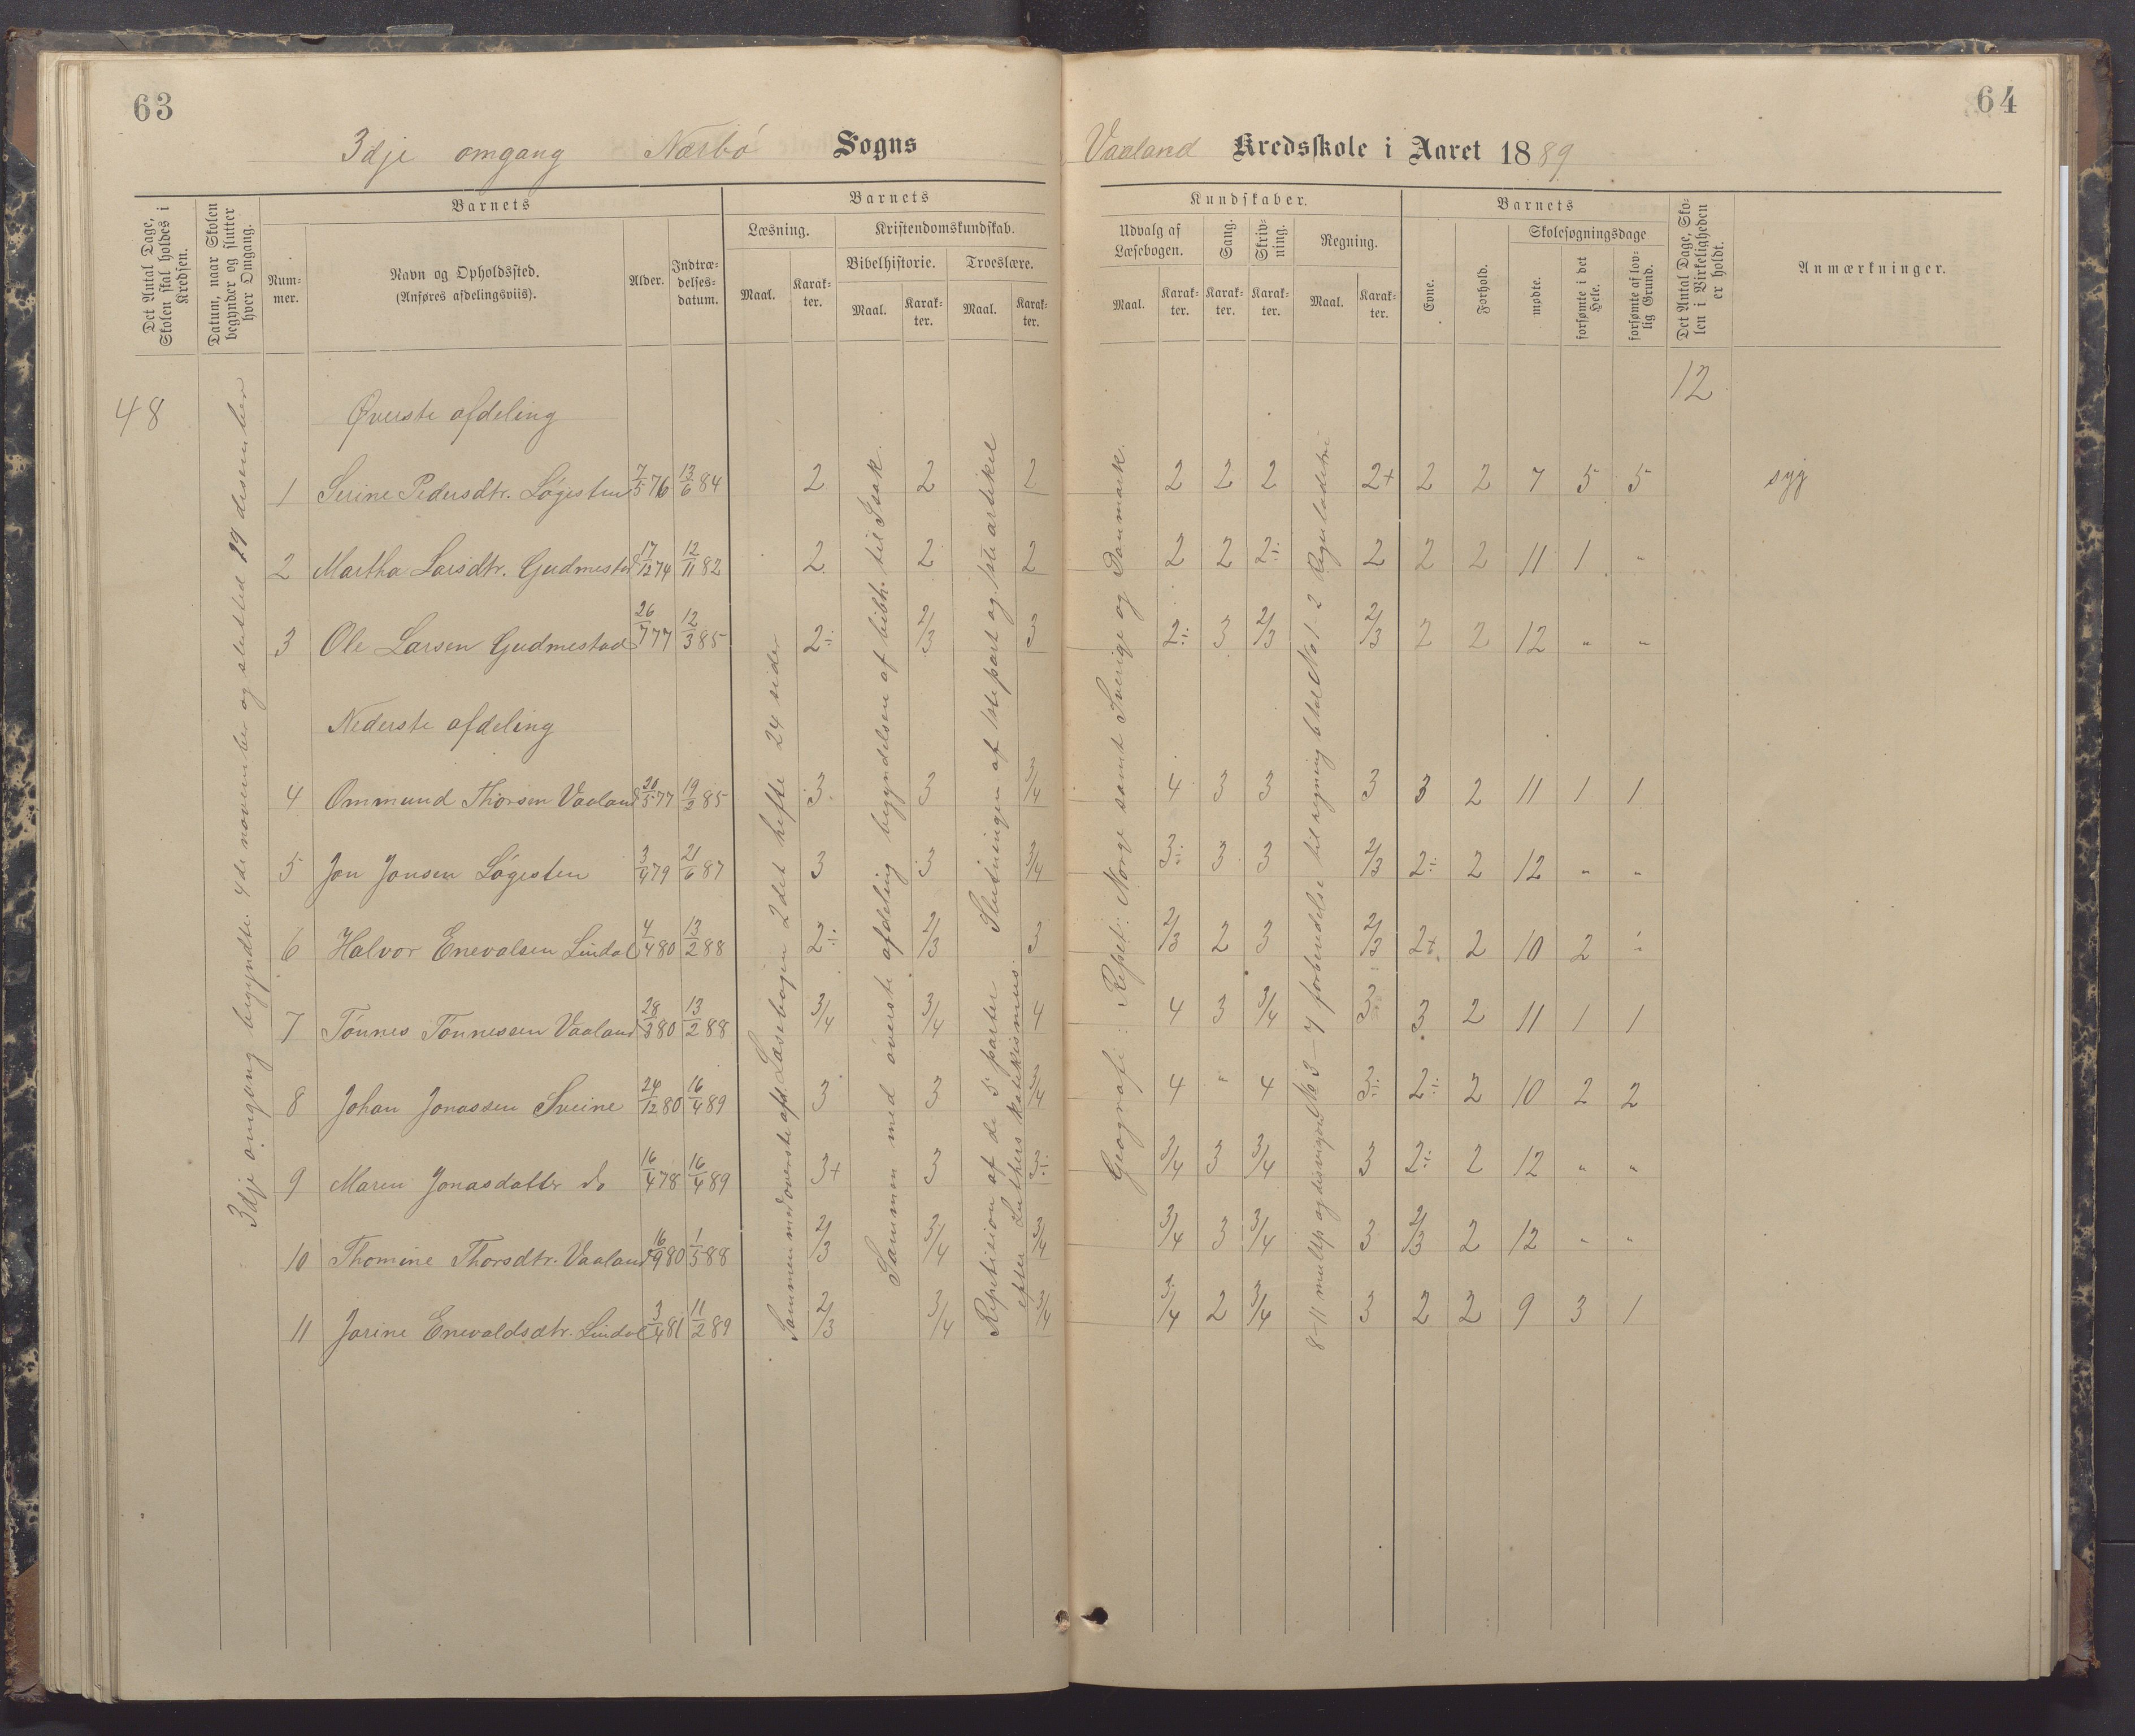 63
3dje omgang Nærbø Sogns
Det Antal Dage, Skolen skal holdes i Kredsen.
Datum, naar Skolen begynder og slutter hver Omgang.
Barnets
Nummer.
Navn og Opholdssted.
(Anføres afdelingsviis).
Alder.
Indtrædelsesdatum.
Barnets
Læsning.
Maal.
Karakter.
Kristendomskundskab.
Bibelhistorie.
Maal.
Karakter.
Troeslære.
Maal.
Karakter.
64
Vaaland Kredsskole i Aaret 1889
Kundskaber.
Udvalg af Læsebogen.
Maal.
Karakter.
Sang.
Karakter.
Skrivning.
Karakter.
Regning.
Maal.
Karakter.
Barnets
Evne.
Forhold.
Skolesøgningsdage
mødte.
forsømte i det Hele.
forsømte af lovlig Grund.
Det Antal Dage, Skolen i Virkeligheden er holdt.
Anmærkninger.
48
12
3dje omgang begyndte 4de november og slutted 17 desember
Øverste afdeling
1 Serine Pedersdtr. Løgesten 7/5 76 13/6 84 2 2 2 2 2 2 2+ 2 2 7 5 5 syg
2 Martha Larsdtr. Gudmestad 17/12 74 12/11 82 2 2 2 2 2 2÷ 2 2 2 11 1 "
3 Ole Larsen Gudmestad 26/7 77 12/3 85 2÷ 2/3 3 2÷ 3 2/3 2/3 2 2 12 " "
Nederste afdeling
4 Ommund Thorsen Vaaland 20/5 77 19/2 85 3 3 3/4 4 3 3 3 3 2 11 1 1
5 Jon Jonsen Løgesten 3/4 79 21/6 87 3 3 3/4 3÷ 3 3 2/3 2÷ 2 12 " "
6 Halvor Enevalsen Lindal 4/4 80 13/2 88 2÷ 2/3 3 2/3 2 3 2/3 2+ 2 10 2 "
7 Tønnes Tønnessen Vaaland 28/3 80 13/2 88 3/4 3/4 4 4 3 3/4 3 3 2 11 1 1
8 Johan Jonassen Sveine 24/12 80 16/4 89 3 3 3/4 4 " 4 3÷ 2÷ 2 10 2 2
9 Maren Jonasdatter do 16/4 78 16/4 89 3+ 3 3÷ 3/4 3 3/4 3 2÷ 2 12 " "
10 Thomine Thorsdtr. Vaaland 16/9 80 1/5 88 2/3 3/4 3/4 3/4 3 3/4 3 2/3 2 12 " "
11 Jorine Enevaldsdtr. Lindal 3/4 81 11/2 89 2/3 3/4 3/4 3/4 2 3/4 3 2 2 9 3 1
Sammen med øverste afd. Læsebogen 2det hefte 24 sider
Sammen med øverste afdeling begyndelsen af bibh. til Isak.
Repetision af de 5 parter Slutningen af 1ste part og 1ste artikel
efter Luthers katekismus.
Geografi: Repet: Norge samt Sverige og Danmark.
8-11 multip og divisjon No 3-7 forberedelse til regning No 1-2